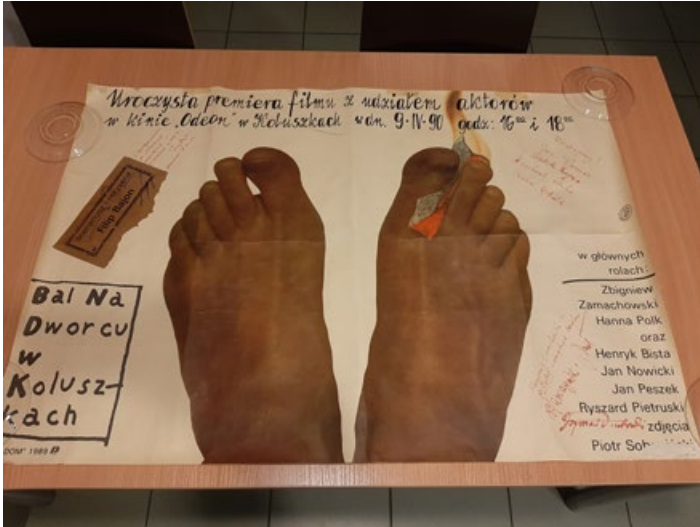 Uroczysta premiera filmu z udziałem aktorów
w kinie „Odeon" w Koluszkach w dn. 9-IV-90 godz: 16⁰⁰ i 18⁰⁰
scenariusz i reżyseria
Filip Bajon
Bal Na
Dworcu
w
Kolusz-
kach
w głównych
rolach:
Zbigniew
Zamachowski
Hanna Polk
oraz
Henryk Bista
Jan Nowicki
Jan Peszek
Ryszard Pietruski
zdjęcia
Piotr
DOM' 1989